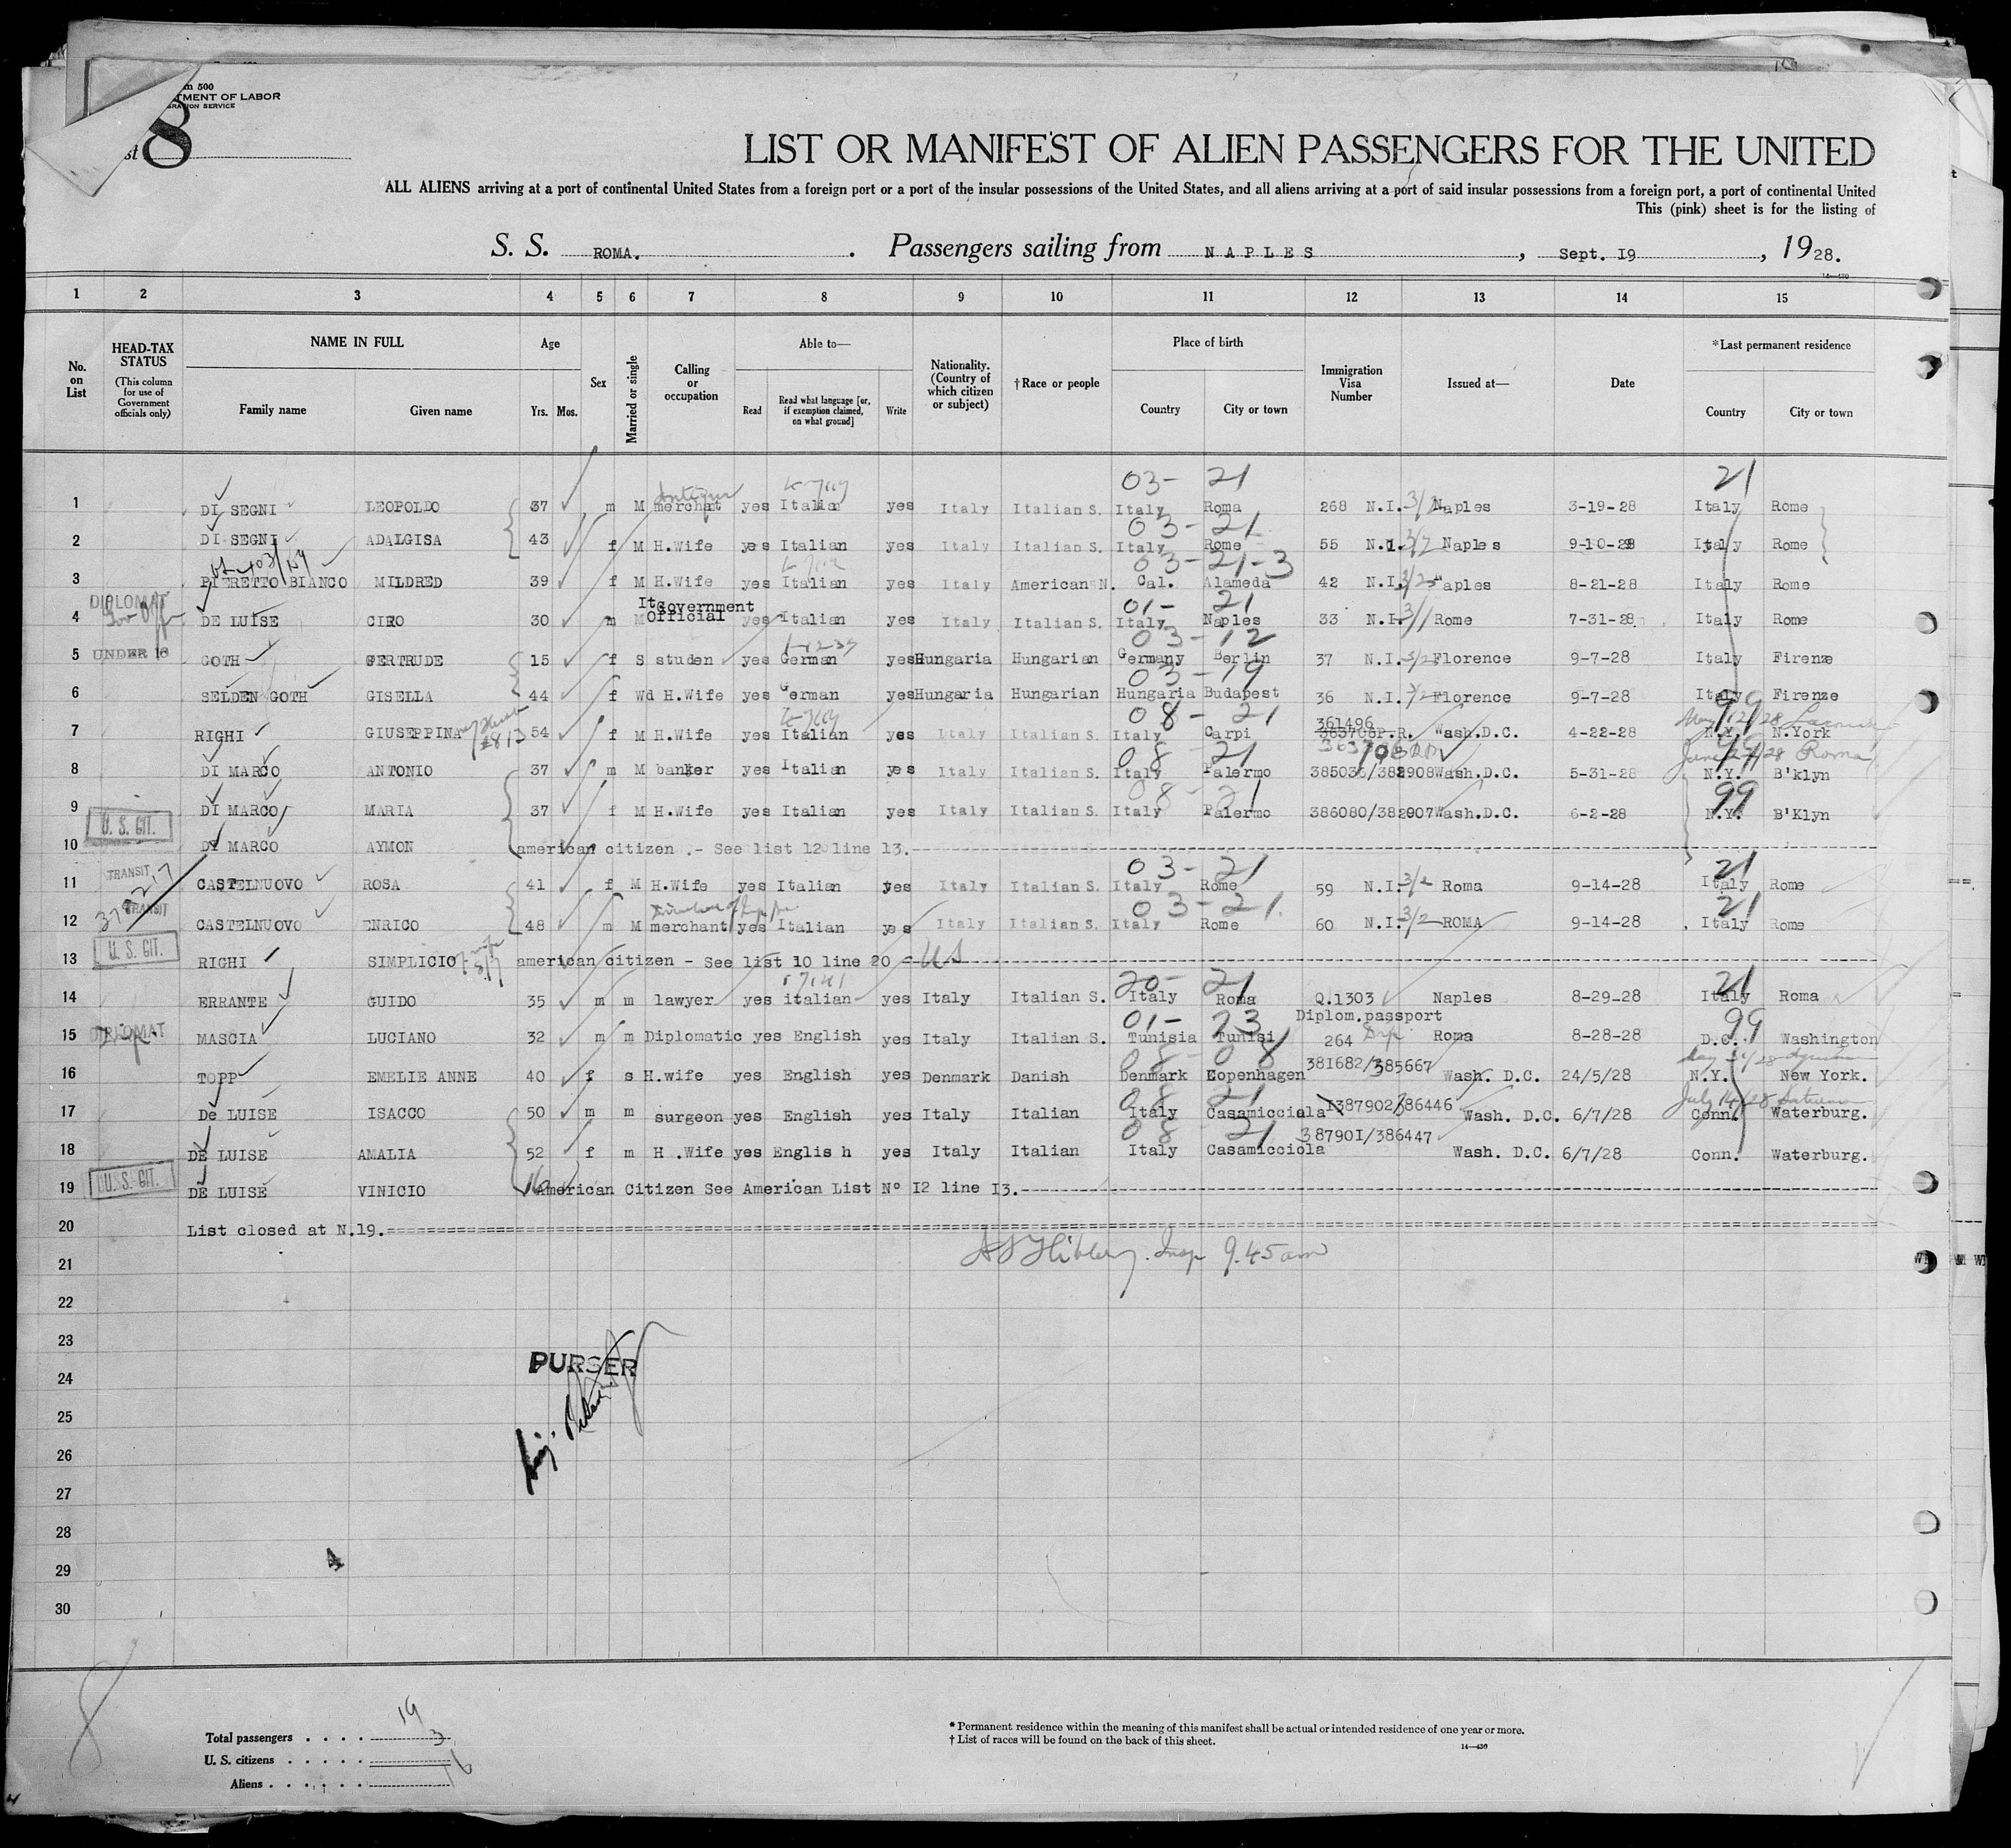 m 500
TMENT OF LABOR
RATION SERVICE
st 8
LIST OR MANIFEST OF ALIEN PASSENGERS FOR THE UNITED
ALL ALIENS arriving at a port of continental United States from a foreign port or a port of the insular possessions of the United States, and all aliens arriving at a port of said insular possessions from a foreign port, a port of continental United
This (pink) sheet is for the listing of
S. S. ROMA. Passengers sailing from NAPLES, Sept. I9, 1928.
14—430
1 2 3 4 5 6 7 8 9 10 11 12 13 14 15
No. on List
HEAD-TAX STATUS
(This column for use of Government officials only)
NAME IN FULL
Family name Given name
Age
Yrs. Mos.
Sex
Married or single
Calling or occupation
Able to—
Read
Read what language [or, if exemption claimed, on what ground]
Write
Nationality. (Country of which citizen or subject)
†Race or people
Place of birth
Country City or town
Immigration Visa Number
Issued at—
Date
*Last permanent residence
Country City or town
03- 21 21
Antique
1 DI SEGNI LEOPOLDO 37 m M merchant yes Italian yes Italy Italian S. Italy Roma 268 N.I. 3/2 Naples 3-19-28 Italy Rome
03-21
2 DI SEGNI ADALGISA 43 f M H.Wife yes Italian yes Italy Italian S. Italy Rome 55 N.I. 3/2 Naples 9-10-28 Italy Rome
03-21-3
3 PIERETTO BIANCO MILDRED 39 f M H.Wife yes Italian yes Italy American N. Cal. Alameda 42 N.I. 3/2 Naples 8-21-28 Italy Rome
DIPLOMAT
It Government
01- 21
4 DE LUISE CIRO 30 m M Official yes Italian yes Italy Italian S. Italy Naples 33 N.I. 3/1 Rome 7-31-28 Italy Rome
03-12
5 UNDER 16 GOTH GERTRUDE 15 f S studen yes German yes Hungaria Hungarian Germany Berlin 37 N.I. 3/2 Florence 9-7-28 Italy Firenze
03-19
6 SELDEN GOTH GISELLA 44 f Wd H.Wife yes German yes Hungaria Hungarian Hungaria Budapest 36 N.I. 3/2 Florence 9-7-28 Italy Firenze
08- 21 361496 99
7 RIGHI GIUSEPPINA 54 f M H.Wife yes Italian yes Italy Italian S. Italy Carpi 363708P.R. Wash.D.C. 4-22-28 N.Y. N.York
08 21 363708 June 27/28 Roma
8 DI MARCO ANTONIO 37 m M banker yes Italian yes Italy Italian S. Italy Palermo 385036/382908 Wash.D.C. 5-31-28 N.Y. B'klyn
08-21 99
9 DI MARCO MARIA 37 f M H.Wife yes Italian yes Italy Italian S. Italy Palermo 386080/382907 Wash.D.C. 6-2-28 N.Y. B'Klyn
U. S. CIT.
10 DI MARCO AYMON american citizen .- See list 12 line 13.
TRANSIT 03-21 21
11 CASTELNUOVO ROSA 41 f M H.Wife yes Italian yes Italy Italian S. Italy Rome 59 N.I. 3/2 Roma 9-14-28 Italy Rome
TRANSIT 03-21 21
12 CASTELNUOVO ENRICO 48 m M merchant yes Italian yes Italy Italian S. Italy Rome 60 N.I. 3/2 ROMA 9-14-28 Italy Rome
U. S. CIT.
13 RIGHI SIMPLICIO american citizen - See list 10 line 20 - US
20- 21 21
14 ERRANTE GUIDO 35 m m lawyer yes italian yes Italy Italian S. Italy Roma Q.1303 Naples 8-29-28 Italy Roma
01- 23 Diplom.passport 99
15 DIPLOMAT MASCIA LUCIANO 32 m m Diplomatic yes English yes Italy Italian S. Tunisia Tunisi 264 Dip Roma 8-28-28 D.C. Washington
08-08
16 TOPP EMELIE ANNE 40 f s H.wife yes English yes Denmark Danish Denmark Copenhagen 381682/385667 Wash. D.C. 24/5/28 N.Y. New York.
08 21
17 De LUISE ISACCO 50 m m surgeon yes English yes Italy Italian Italy Casamicciola 1387902/386446 Wash. D.C. 6/7/28 Conn. Waterburg.
08- 21
18 DE LUISE AMALIA 52 f m H .Wife yes Englis h yes Italy Italian Italy Casamicciola 38790I/386447 Wash. D.C. 6/7/28 Conn. Waterburg.
U. S. CIT.
19 DE LUISE VINICIO 16 American Citizen See American List Nº I2 line I3.
20 List closed at N.19.
21 Insp 9.45 am
22
23
PURSER
24
25
26
27
28
29
30
4
8
Total passengers . . . . 19
U. S. citizens . . . . . 3
Aliens . . . . . . 16
* Permanent residence within the meaning of this manifest shall be actual or intended residence of one year or more.
† List of races will be found on the back of this sheet.
14—430